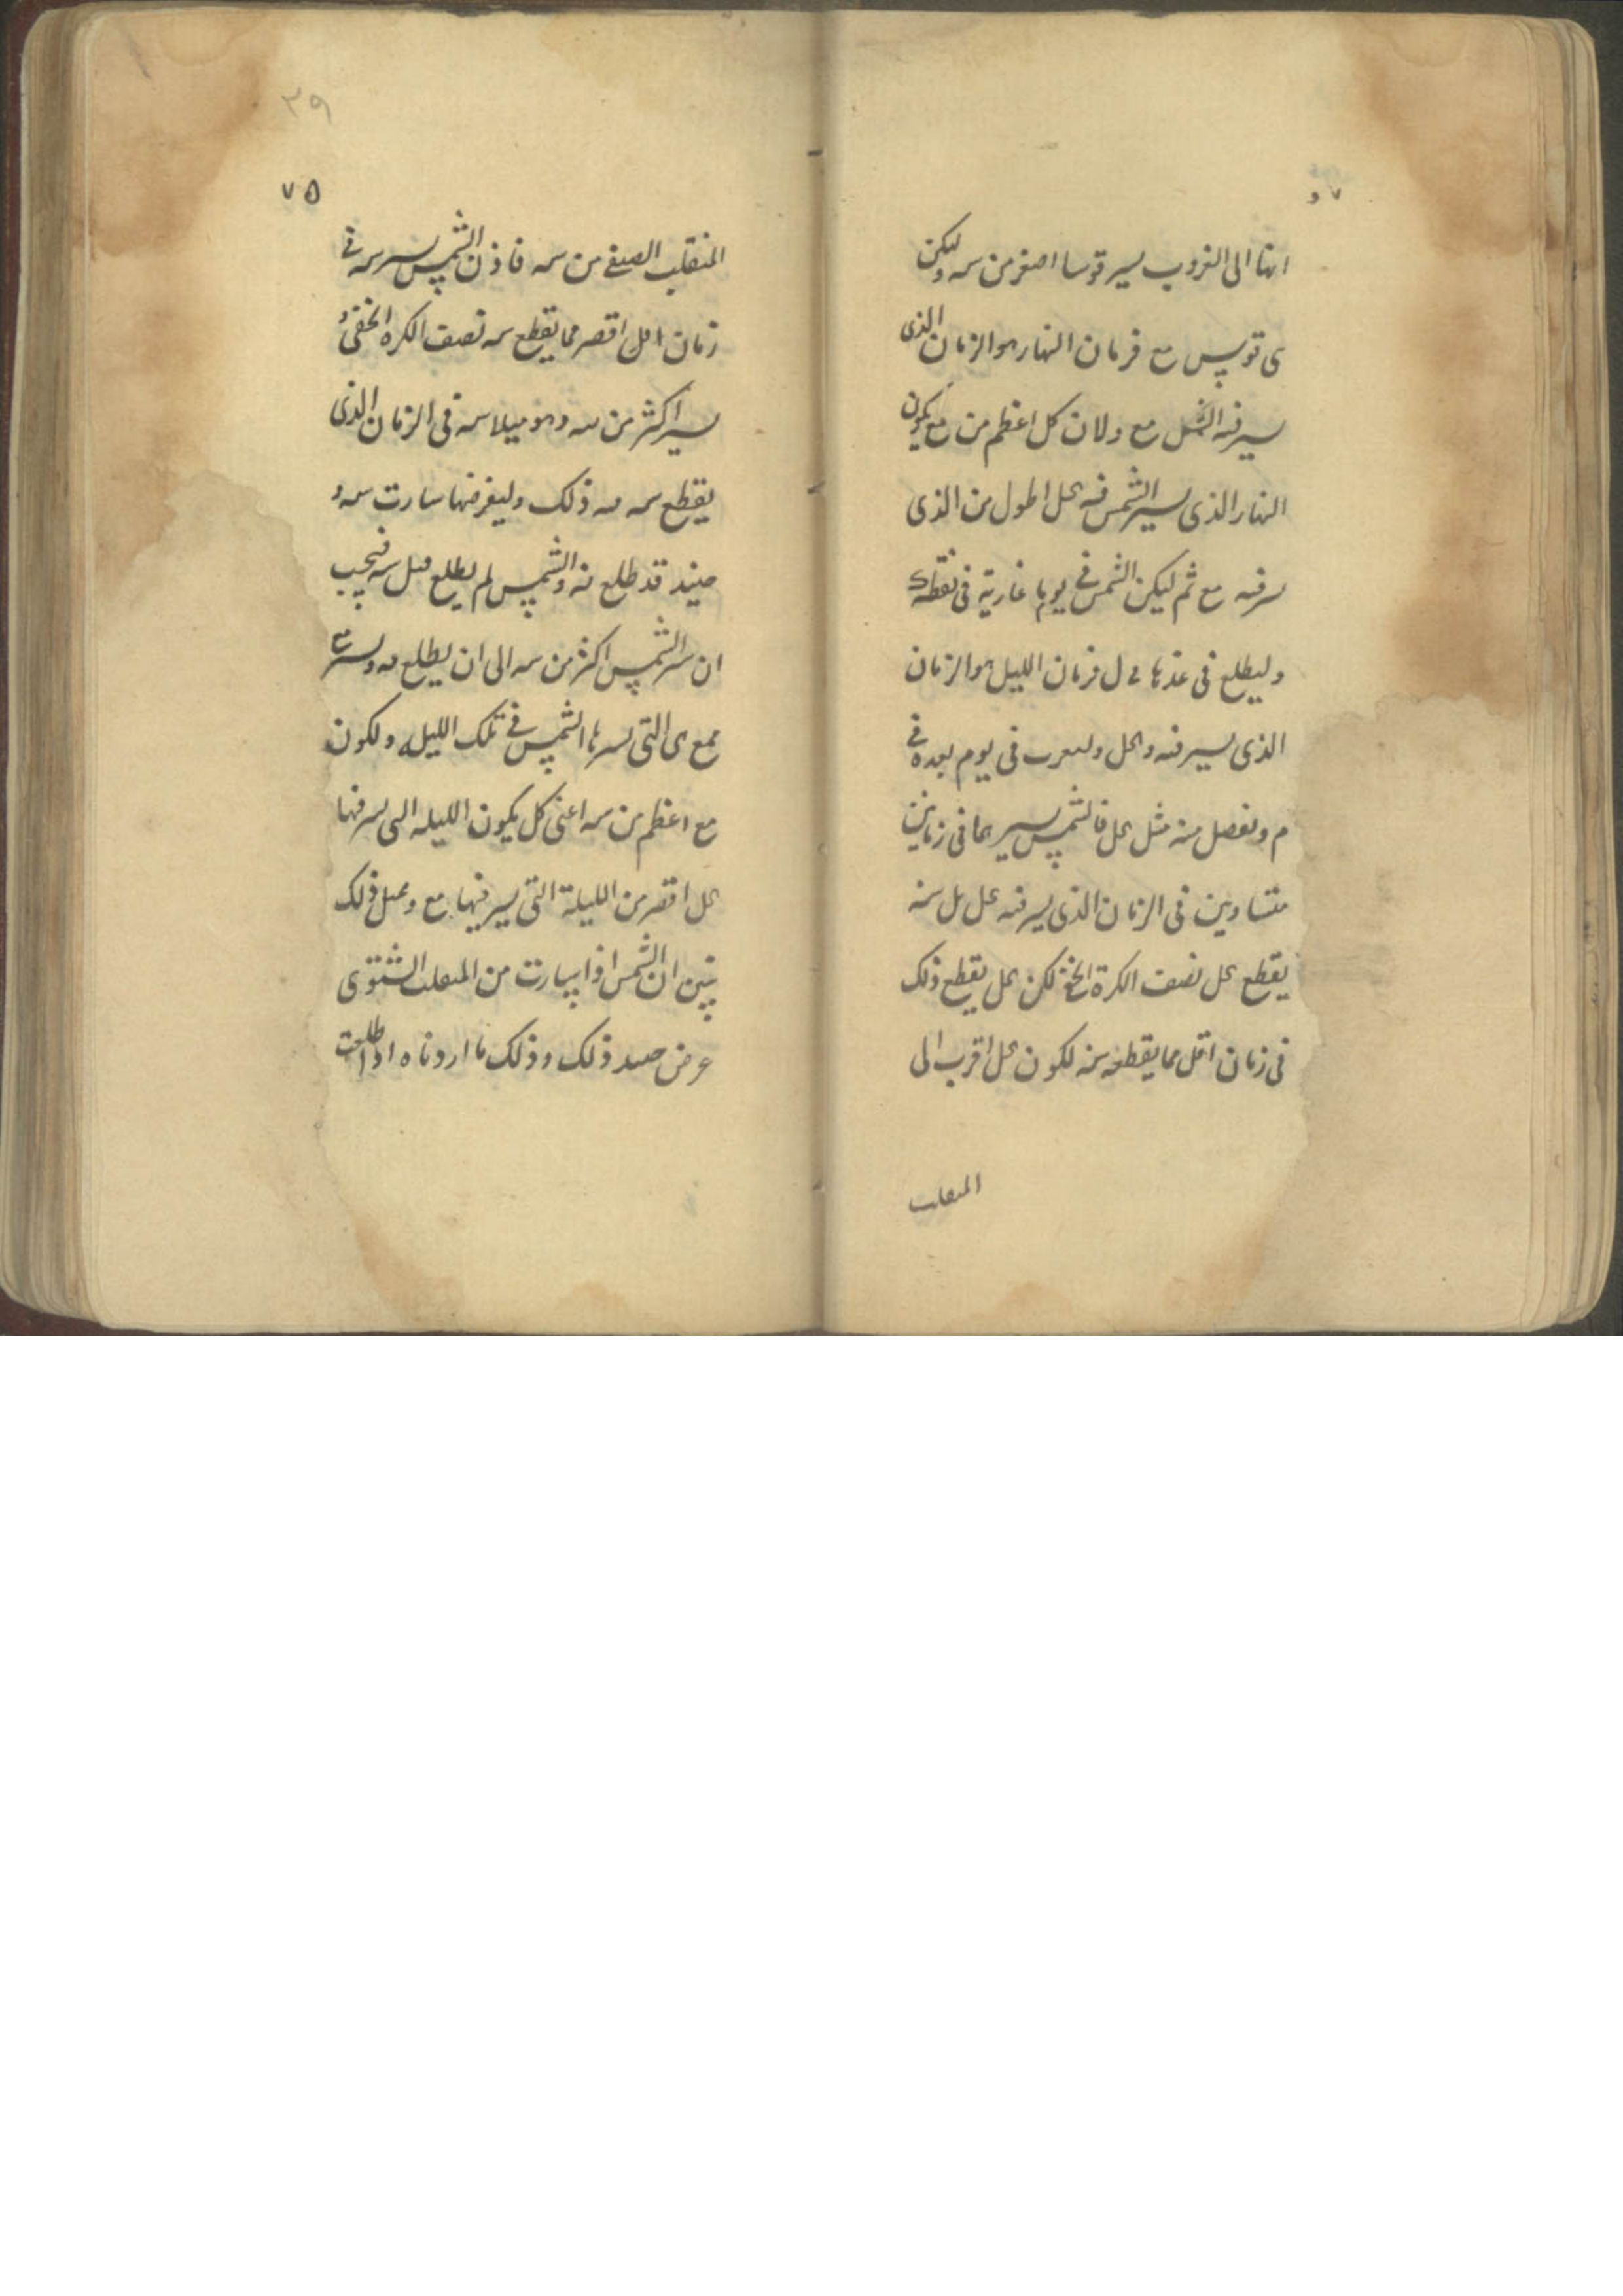 انها الى الغروب يسير قوسا اصغر من سه وليكن
ى قوس مع فزمان النهار هو الزمان الذى
يسير فيه الشمس مع ولان كل اعظم من مع يكون
النهار الذى يسير الشمس فيه كل اطول من الذى
سر فيه مع ثم ليكن الشمس فى يوم ما غاربة فى نقطة ك
وليطلع فى غدها ل فزمان الليل هو الزمان
الذى يسير فيه كل وليغرب فى يوم بعده فى
م ونفصل منه مثل كل فالشمس يسيرهما فى زمانين
متساويين فى الزمان الذى يسير فيه كل بل سنه
يقطع كل نصف الكرة الخفى لكن كل يقطع ذلك
فى زمان اقل مما يقطعه سنه لكون كل اقرب الى
المنقلب
٣٩
٧٥
المنقلب الصيفى من سه فاذن الشمس يسير سه فى
زمان اقل اقصر مما يقطع سه نصف الكره الخفى و
يسير اكثر من سه وهو ميلا سه فى الزمان الذى
يقطع سه ذلك وليفرضها سارت سه و
حينئذ قد طلع والشمس لم يطلع قبل فيجب
ان سر الشمس اكثر من سه الى ان يطلع
مع ى التى يسيرها الشمس فى تلك الليله ولكون
مع اعظم من سه اعنى كل يكون الليله التى يسر فيها
كل اقصر من الليلة التى يسير فيها مع وبمثل ذلك
يتبين ان الشمس اذا سارت من المنقلب الشتوى
عرض ضد ذلك وذلك ما اردناه اذا طلعت